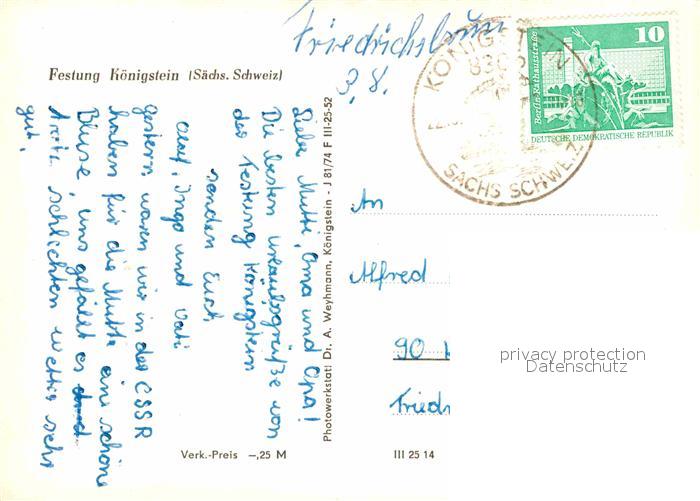 Friedrichsbrunn
3.8.
Festung Königstein (Sächs. Schweiz)
Liebe Mutti, Oma und Opa!
Die besten Urlaubsgrüße von
der Festung Königstein
senden Euch
Olaf, Ingo und Vati
gestern waren wir in der CSSR
haben für die Mutti eine schöne
Bluse, uns gefällt es
trotz schlechten Wetter sehr
gut.
Photowerkstatt Dr. A. Weyhmann, Königstein - J 81/74 F III-25-52
Verk.-Preis —,25 M
III 25 14
KÖNIGSTEIN
SÄCHS SCHWEIZ
Berlin-Rathausstraße
10
DEUTSCHE DEMOKRATISCHE REPUBLIK
An
Alfred
90
Friedr
privacy protection
Datenschutz